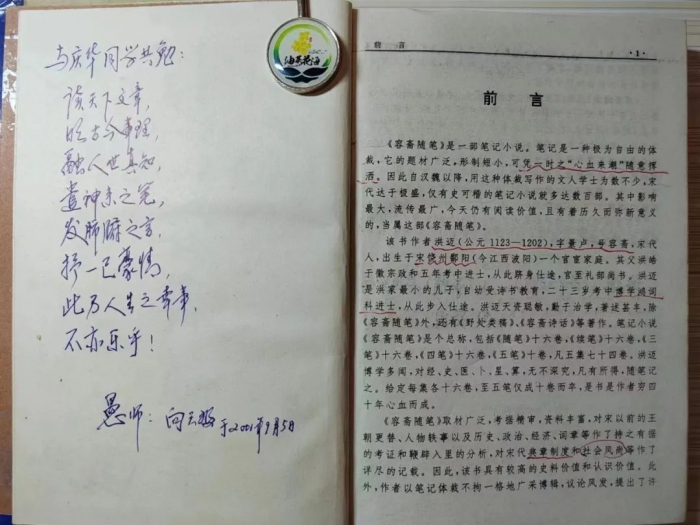 与庆华同学共勉:
读天下文章,
明古今事理,
融人世真知,
发肺腑之言,
抒一己豪情,
此乃人生之幸事,
不亦乐乎!
愚师:
于2001年9月5日
油菜花海
前 言
·1·
前言
《容斋随笔》是一部笔记小说。笔记是一种极为自由的体
裁,它的题材广泛,形制短小,可凭一时之“心血来潮”随意挥
洒。因此自汉魏以降,用这种体裁写作的文人学士为数不少,宋
代达于极盛,仅有史可稽的笔记小说就多达数百部。其中影响
最大,流传最广,今天仍有阅读价值,且有着历久而弥新意义
的,当属这部《容斋随笔》。
该书作者洪迈(公元1123—1202),字景卢,号容斋,宋代
人,出生于宋饶州鄱阳(今江西波阳)一个官宦家庭。其父洪皓
于徽宗政和五年考中进士,从此跻身仕途,官至礼部尚书。洪迈
是洪家最小的儿子,自幼受诗书教育,二十三岁考中博学鸿词
科进士,从此步入仕途。洪迈天资聪敏,勤于治学,著述甚丰,除
《容斋随笔》外,还有《野处类稿》、《容斋诗话》等著作。笔记小说
《容斋随笔》是个总称,包括《随笔》十六卷,《续笔》十六卷,《三
笔》十六卷,《四笔》十六卷,《五笔》十卷,凡五集七十四卷。洪迈
博学多闻,对经、史、医、卜、星、算,无不深究,凡有所得,随笔记
之。给定每集各十六卷,至五笔仅成十卷而卒,是书是作者穷四
十年心血而成。
《容斋随笔》取材广泛,考据精审,资料丰富,对宋以前的王
朝更替、人物轶事以及历史、政治、经济、词章等作了持之有据
的考证和鞭辟入里的分析,对宋代典章制度和社会风尚等作了
详尽的记载。因此,该书具有较高的史料价值和认识价值。此
外,作者以笔记体裁不拘一格地广采博辑,议论风发,提出了许